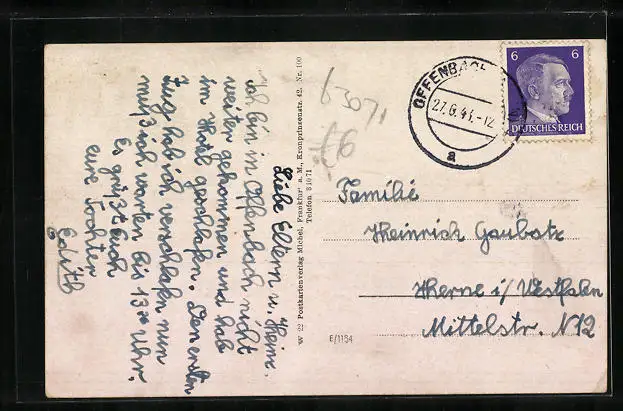 Liebe Eltern u. Heinz.
Ich bin in Offenbach nicht
weiter gekommen und hab
im Hotel geschlafen. Den ersten
Zug hab ich verschlafen nun
muß ich warten bis 13⁰⁰ Uhr.
Es grüßt Euch
eure Tochter
Edith
W 22 Postkartenverlag Michel, Frankfurt a. M., Kronprinzenstr. 42. Nr. 100
Telefon 31071
63071
OFFENBACH
27.6.43.-12
a
6 6
DEUTSCHES REICH
Familie
Heinrich Gaubatz
Herne i/ Westfalen
Mittelstr. N12
E/1154